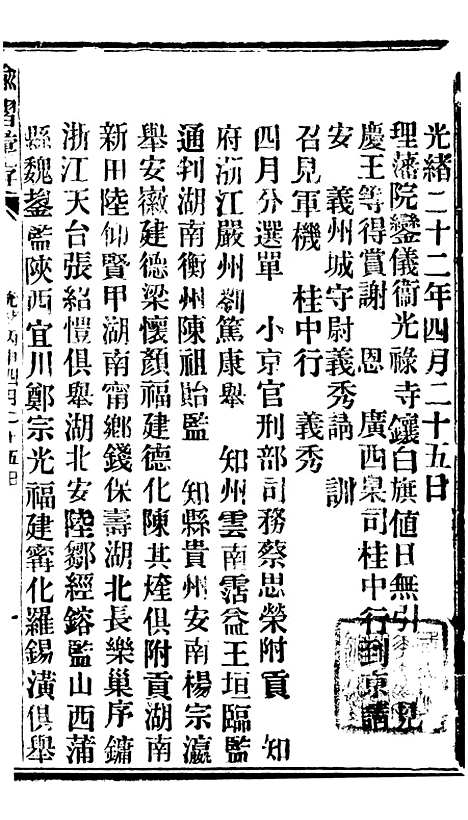 光緒二十二年四月二十五日
理藩院鑾儀衛光祿寺鑲白旗值日無引見
慶王等得賞謝　恩　廣西臬司桂中行到京請
安　義州城守尉義秀請　訓
召見軍機　桂中行　義秀
四月分選單　小京官刑部司務蔡思榮附貢　知
府浙江嚴州劉篤康舉　知州雲南霑益王垣臨監
通判湖南衡州陳祖貽監　知縣貴州安南楊宗瀛
舉安徽建德梁懷顏福建德化陳其煃俱附貢湖南
新田陸仰賢甲湖南甯鄉錢保壽湖北長樂巢序鏞
浙江天台張紹愷俱舉湖北安陸鄒經鎔監山西蒲
縣魏鋆監陝西宜川鄭宗光福建甯化羅錫潢俱舉
諭摺彙存
光緒丙申四月二十五日